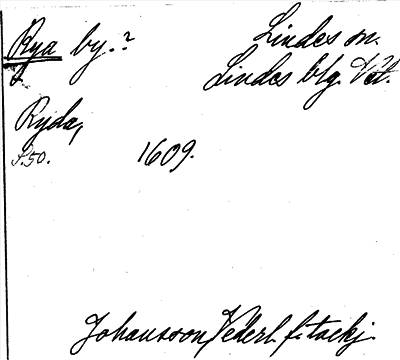 Rya by.? Lindes sn.
Lindes blg. Vstm.
Ryda,
s. 50. 1609.
Johansson, Vederl. f. tackj.